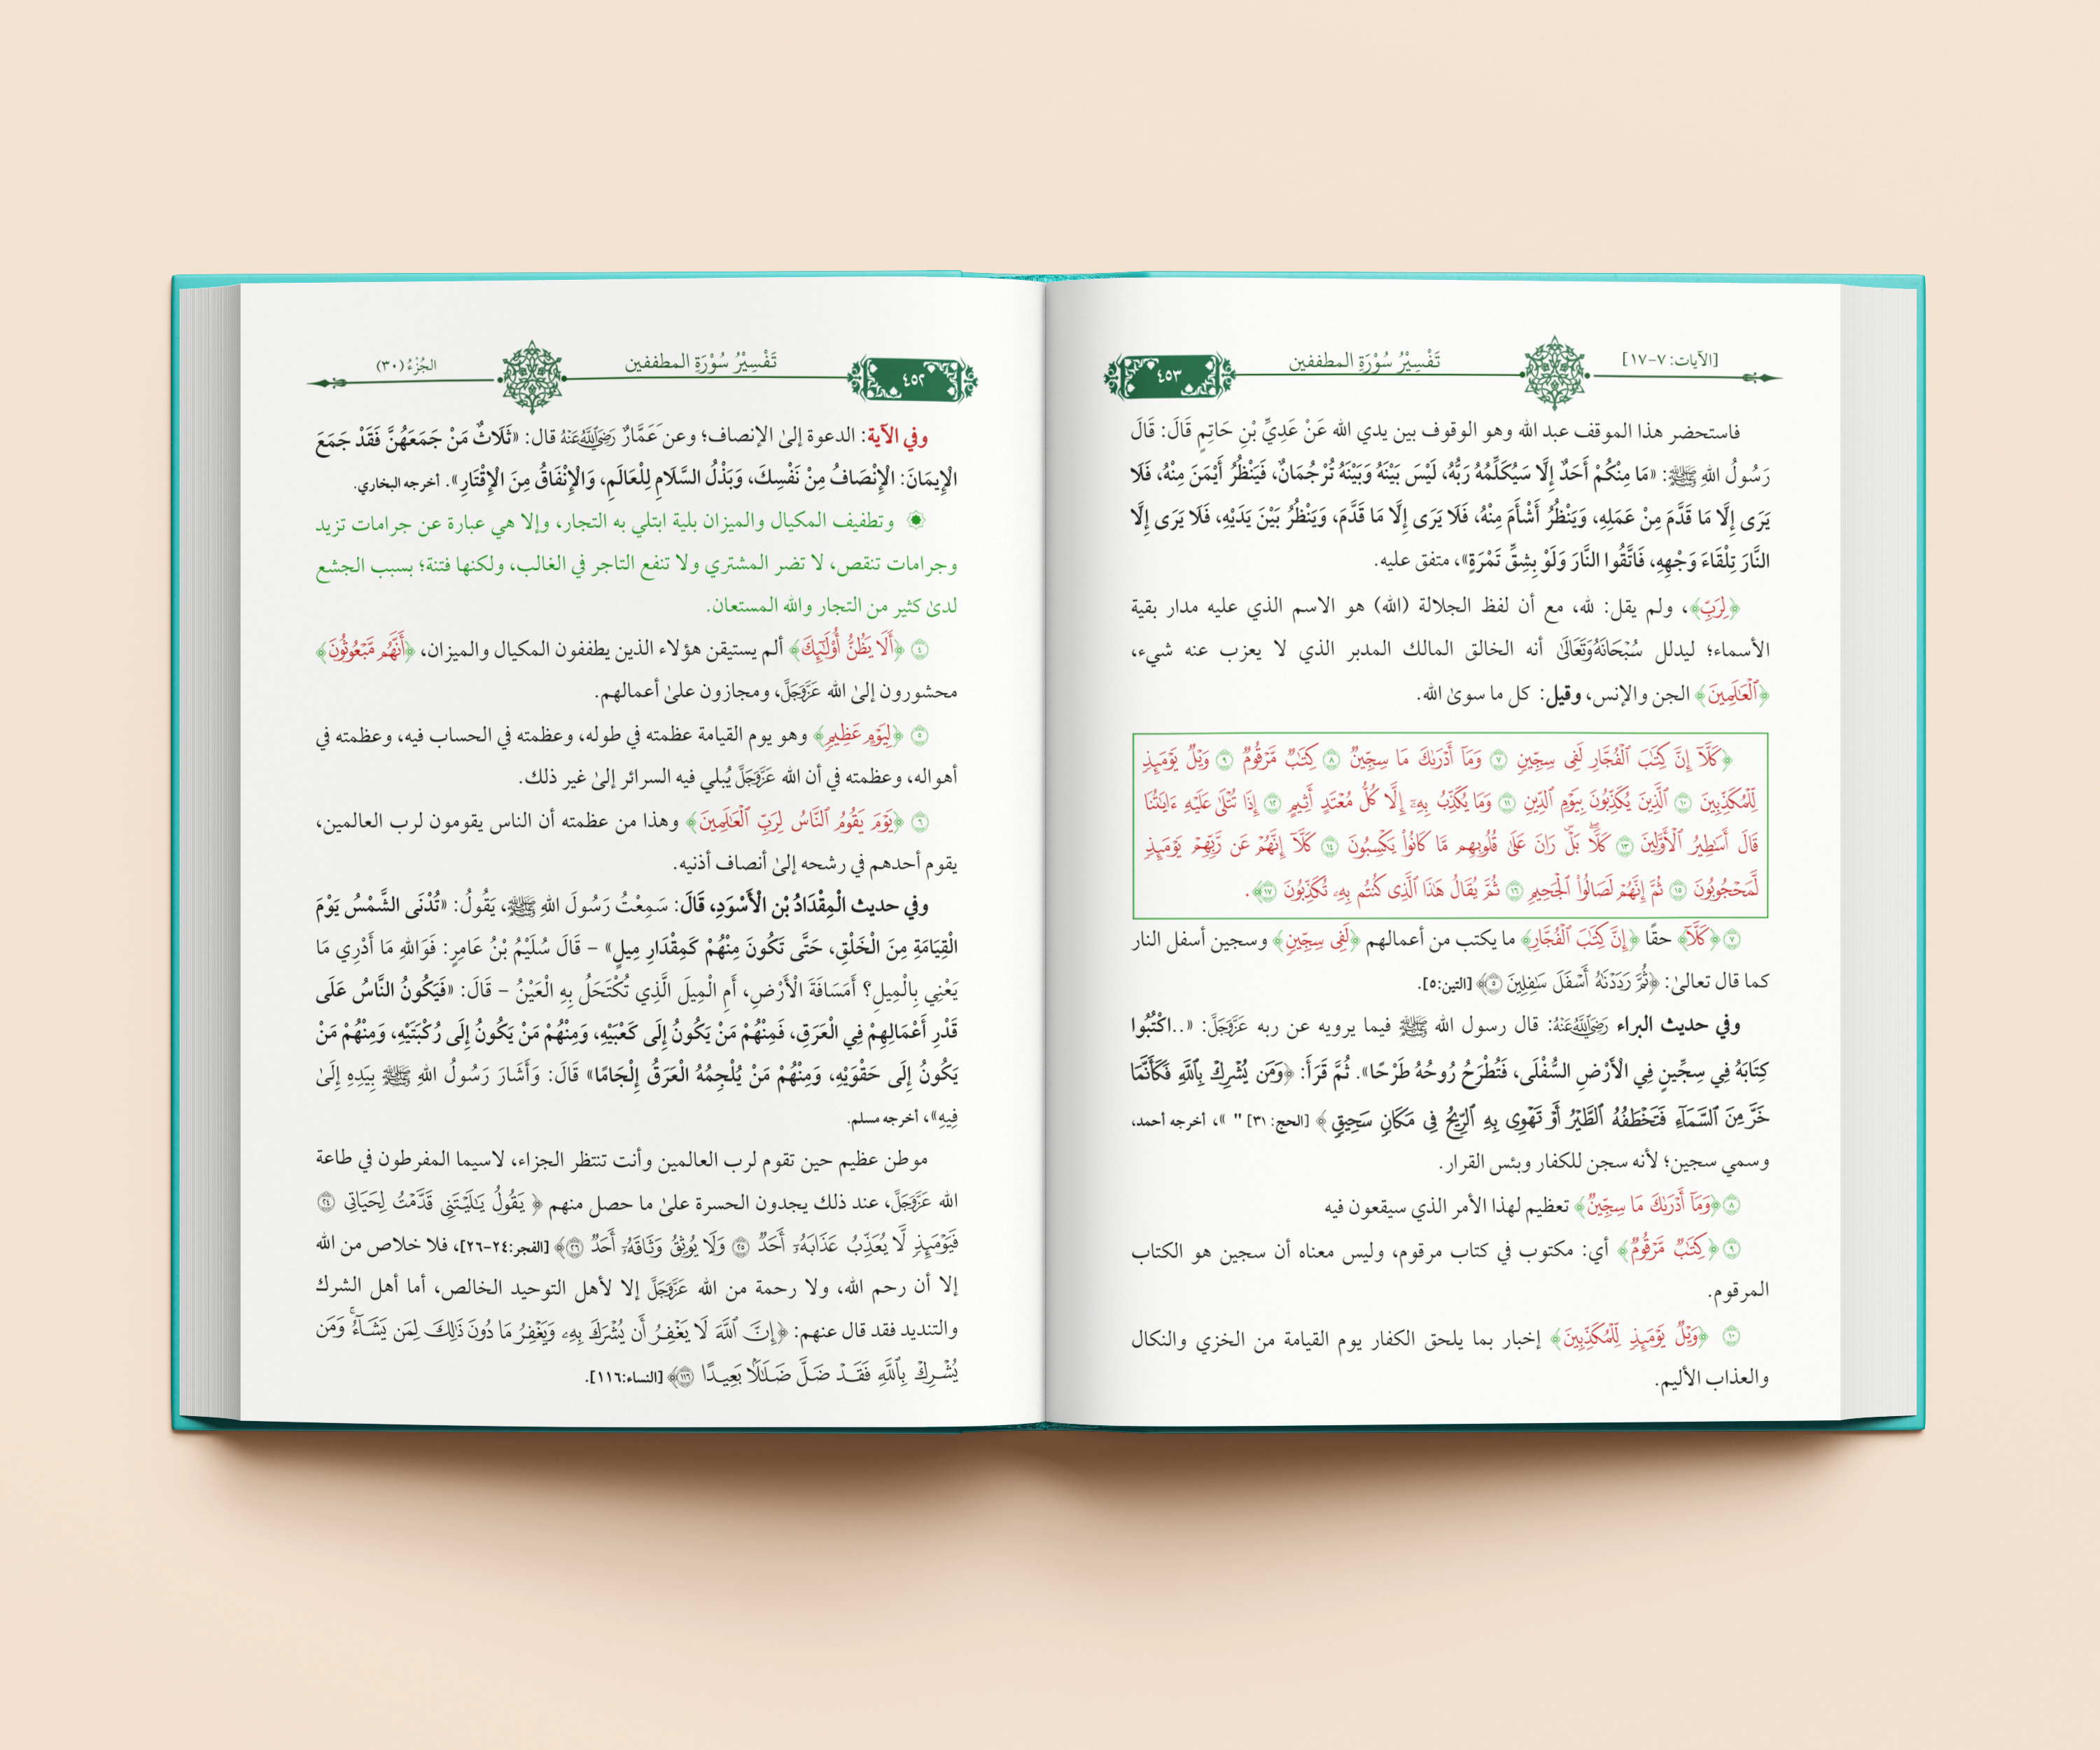 الجُزْءُ (٣٠)
تَفْسِيْرُ سُوْرَةِ المطففين
٤٥٢
وفي الآية: الدعوة إلىٰ الإنصاف؛ وعن عَمَّارٌ رَضِيَ اللَّهُ عَنْهُ قال: «ثَلَاثٌ مَنْ جَمَعَهُنَّ فَقَدْ جَمَعَ
الإِيمَانَ: الْإِنْصَافُ مِنْ نَفْسِكَ، وَبَذْلُ السَّلَامِ لِلْعَالَمِ، وَالْإِنْفَاقُ مِنَ الْإِقْتَارِ». أخرجه البخاري.
وتطفيف المكيال والميزان بلية ابتلي به التجار، وإلا هي عبارة عن جرامات تزيد
وجرامات تنقص، لا تضر المشتري ولا تنفع التاجر في الغالب، ولكنها فتنة؛ بسبب الجشع
لدىٰ كثير من التجار والله المستعان.
٤ ﴿أَلَا يَظُنُّ أُوْلَٰٓئِكَ﴾ ألم يستيقن هؤلاء الذين يطففون المكيال والميزان، ﴿أَنَّهُم مَّبْعُوثُونَ﴾
محشورون إلىٰ الله عَزَّوَجَلَّ، ومجازون علىٰ أعمالهم.
٥ ﴿لِيَوْمٍ عَظِيمٖ﴾ وهو يوم القيامة عظمته في طوله، وعظمته في الحساب فيه، وعظمته في
أهواله، وعظمته في أن الله عَزَّوَجَلَّ يُبلي فيه السرائر إلىٰ غير ذلك.
٦ ﴿يَوْمَ يَقُومُ ٱلنَّاسُ لِرَبِّ ٱلْعَٰلَمِينَ﴾ وهذا من عظمته أن الناس يقومون لرب العالمين،
يقوم أحدهم في رشحه إلىٰ أنصاف أذنيه.
وفي حديث الْمِقْدَادُ بْن الْأَسْوَدِ، قَالَ: سَمِعْتُ رَسُولَ اللهِ ﷺ، يَقُولُ: «تُدْنَى الشَّمْسُ يَوْمَ
الْقِيَامَةِ مِنَ الْخَلْقِ، حَتَّى تَكُونَ مِنْهُمْ كَمِقْدَارِ مِيلٍ» – قَالَ سُلَيْمُ بْنُ عَامِرٍ: فَوَاللهِ مَا أَدْرِي مَا
يَعْنِي بِالْمِيلِ؟ أَمَسَافَةَ الْأَرْضِ، أَمِ الْمِيلَ الَّذِي تُكْتَحَلُ بِهِ الْعَيْنُ – قَالَ: «فَيَكُونُ النَّاسُ عَلَى
قَدْرِ أَعْمَالِهِمْ فِي الْعَرَقِ، فَمِنْهُمْ مَنْ يَكُونُ إِلَى كَعْبَيْهِ، وَمِنْهُمْ مَنْ يَكُونُ إِلَى رُكْبَتَيْهِ، وَمِنْهُمْ مَنْ
يَكُونُ إِلَى حَقْوَيْهِ، وَمِنْهُمْ مَنْ يُلْجِمُهُ الْعَرَقُ إِلْجَامًا» قَالَ: وَأَشَارَ رَسُولُ اللهِ ﷺ بِيَدِهِ إِلَىٰ
فِيهِ»، أخرجه مسلم.
موطن عظيم حين تقوم لرب العالمين وأنت تنتظر الجزاء، لاسيما المفرطون في طاعة
الله عَزَّوَجَلَّ، عند ذلك يجدون الحسرة علىٰ ما حصل منهم ﴿ يَقُولُ يَٰلَيْتَنِي قَدَّمْتُ لِحَيَاتِي ٢٤
فَيَوْمَئِذٖ لَّا يُعَذِّبُ عَذَابَهُۥٓ أَحَدٞ ٢٥ وَلَا يُوثِقُ وَثَاقَهُۥٓ أَحَدٞ ٢٦﴾ [الفجر:٢٤-٢٦]، فلا خلاص من الله
إلا أن رحم الله، ولا رحمة من الله عَزَّوَجَلَّ إلا لأهل التوحيد الخالص، أما أهل الشرك
والتنديد فقد قال عنهم: ﴿إِنَّ ٱللَّهَ لَا يَغْفِرُ أَن يُشْرَكَ بِهِۦ وَيَغْفِرُ مَا دُونَ ذَٰلِكَ لِمَن يَشَآءُۚ وَمَن
يُشْرِكْ بِٱللَّهِ فَقَدْ ضَلَّ ضَلَٰلًۢا بَعِيدًا ١١٦﴾ [النساء:١١٦].
[الآيات: ٧-١٧]
تَفْسِيْرُ سُوْرَةِ المطففين
٤٥٣
فاستحضر هذا الموقف عبد الله وهو الوقوف بين يدي الله عَنْ عَدِيِّ بْنِ حَاتِمٍ قَالَ: قَالَ
رَسُولُ اللهِ ﷺ: «مَا مِنْكُمْ أَحَدٌ إِلَّا سَيُكَلِّمُهُ رَبُّهُ، لَيْسَ بَيْنَهُ وَبَيْنَهُ تُرْجُمَانٌ، فَيَنْظُرُ أَيْمَنَ مِنْهُ، فَلَا
يَرَى إِلَّا مَا قَدَّمَ مِنْ عَمَلِهِ، وَيَنْظُرُ أَشْأَمَ مِنْهُ، فَلَا يَرَى إِلَّا مَا قَدَّمَ، وَيَنْظُرُ بَيْنَ يَدَيْهِ، فَلَا يَرَى إِلَّا
النَّارَ تِلْقَاءَ وَجْهِهِ، فَاتَّقُوا النَّارَ وَلَوْ بِشِقِّ تَمْرَةٍ»، متفق عليه.
﴿لِرَبِّ﴾، ولم يقل: لله، مع أن لفظ الجلالة (الله) هو الاسم الذي عليه مدار بقية
الأسماء؛ ليدلل سُبْحَانَهُ وَتَعَالَىٰ أنه الخالق المالك المدبر الذي لا يعزب عنه شيء،
﴿ٱلْعَٰلَمِينَ﴾ الجن والإنس، وقيل: كل ما سوىٰ الله.
﴿كَلَّآ إِنَّ كِتَٰبَ ٱلْفُجَّارِ لَفِي سِجِّينٖ ٧ وَمَآ أَدْرَىٰكَ مَا سِجِّينٞ ٨ كِتَٰبٞ مَّرْقُومٞ ٩ وَيْلٞ يَوْمَئِذٖ
لِّلْمُكَذِّبِينَ ١٠ ٱلَّذِينَ يُكَذِّبُونَ بِيَوْمِ ٱلدِّينِ ١١ وَمَا يُكَذِّبُ بِهِۦٓ إِلَّا كُلُّ مُعْتَدٍ أَثِيمٍ ١٢ إِذَا تُتْلَىٰ عَلَيْهِ ءَايَٰتُنَا
قَالَ أَسَٰطِيرُ ٱلْأَوَّلِينَ ١٣ كَلَّاۖ بَلْۜ رَانَ عَلَىٰ قُلُوبِهِم مَّا كَانُوا۟ يَكْسِبُونَ ١٤ كَلَّآ إِنَّهُمْ عَن رَّبِّهِمْ يَوْمَئِذٖ
لَّمَحْجُوبُونَ ١٥ ثُمَّ إِنَّهُمْ لَصَالُوا۟ ٱلْجَحِيمِ ١٦ ثُمَّ يُقَالُ هَٰذَا ٱلَّذِي كُنتُم بِهِۦ تُكَذِّبُونَ ١٧﴾.
٧ ﴿كَلَّآ﴾ حقًا ﴿إِنَّ كِتَٰبَ ٱلْفُجَّارِ﴾ ما يكتب من أعمالهم ﴿لَفِي سِجِّينٖ﴾ وسجين أسفل النار
كما قال تعالىٰ: ﴿ثُمَّ رَدَدْنَٰهُ أَسْفَلَ سَٰفِلِينَ ٥﴾ [التين:٥].
وفي حديث البراء رَضِيَ اللَّهُ عَنْهُ: قال رسول الله ﷺ فيما يرويه عن ربه عَزَّوَجَلَّ: «..اكْتُبُوا
كِتَابَهُ فِي سِجِّينٍ فِي الْأَرْضِ السُّفْلَى، فَتُطْرَحُ رُوحُهُ طَرْحًا». ثُمَّ قَرَأَ: ﴿وَمَن يُشْرِكْ بِٱللَّهِ فَكَأَنَّمَا
خَرَّ مِنَ ٱلسَّمَآءِ فَتَخْطَفُهُ ٱلطَّيْرُ أَوْ تَهْوِي بِهِ ٱلرِّيحُ فِي مَكَانٖ سَحِيقٖ ﴾ [الحج: ٣١] " »، أخرجه أحمد،
وسمي سجين؛ لأنه سجن للكفار وبئس القرار.
٨ ﴿وَمَآ أَدْرَىٰكَ مَا سِجِّينٞ﴾ تعظيم لهذا الأمر الذي سيقعون فيه
٩ ﴿كِتَٰبٞ مَّرْقُومٞ﴾ أي: مكتوب في كتاب مرقوم، وليس معناه أن سجين هو الكتاب
المرقوم.
١٠ ﴿وَيْلٞ يَوْمَئِذٖ لِّلْمُكَذِّبِينَ﴾ إخبار بما يلحق الكفار يوم القيامة من الخزي والنكال
والعذاب الأليم.